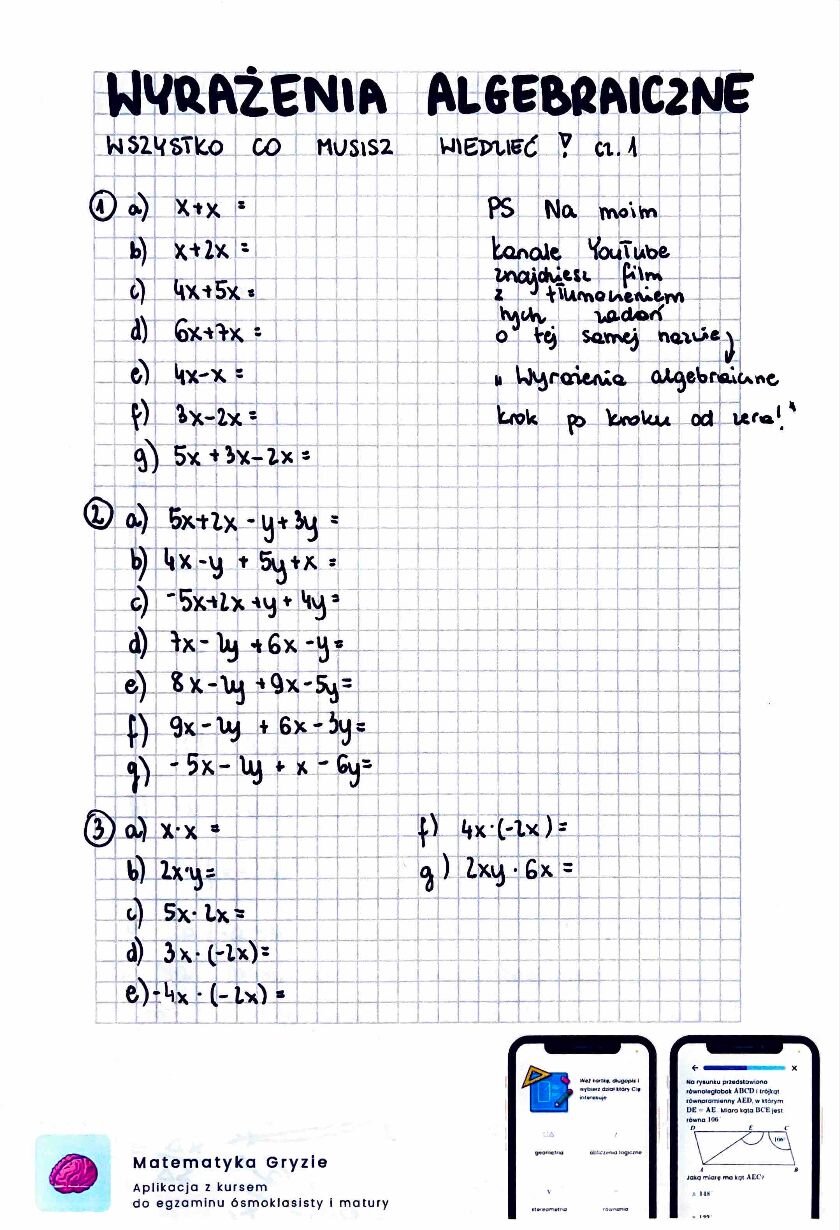 WYRAŻENIA ALGEBRAICZNE
WSZYSTKO CO MUSISZ WIEDZIEĆ ! cz. 1
1 a) x+x =
b) x+2x =
c) 4x+5x =
d) 6x+7x =
e) 4x-x =
f) 3x-2x =
g) 5x+3x-2x =
PS Na moim
kanale YouTube
znajdziesz film
z tłumaczeniem
tych zadań
o tej samej nazwie
"Wyrażenia algebraiczne
krok po kroku od zera!"
2 a) 5x+2x-y+3y =
b) 4x-y+5y+x =
c) -5x+2x+y+4y =
d) 7x-2y+6x-y =
e) 8x-2y+9x-5y =
f) 9x-2y+6x-3y =
g) -5x-2y+x-6y =
3 a) x·x =
b) 2x·y =
c) 5x·2x =
d) 3x·(-2x) =
e) -4x·(-2x) =
f) 4x·(-2x) =
g) 2xy·6x =
Matematyka Gryzie
Aplikacja z kursem
do egzaminu ósmoklasisty i matury
Weź kartkę, długopis i
wybierz dział który Cię
interesuje
geometria obliczenia logiczne
stereometria równania
Na rysunku przedstawiono
równoległobok ABCD i trójkąt
równoramienny AED, w którym
DE = AE. Miara kąta BCE jest
równa 106
D E C
106
A B
Jaką miarę ma kąt AEC?
A 148